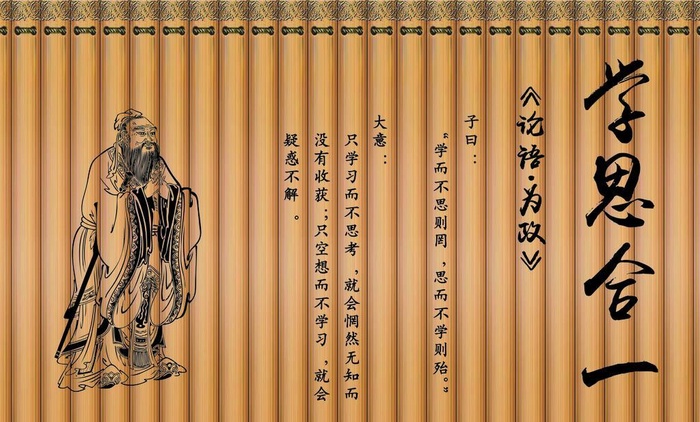 学思合一
《论语·为政》
子曰：
“学而不思则罔，思而不学则殆。”
大意：
只学习而不思考，就会惘然无知而
没有收获；只空想而不学习，就会
疑惑不解。